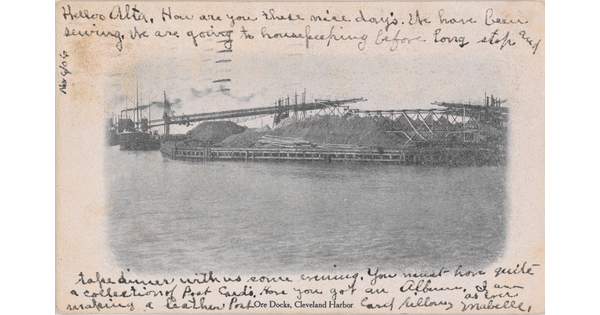 Helloo Alta, How are you these nice day's. We have been
sewing. We are going to housekeeping before long stop and
take dinner with us some evening. You must have quite
a collection of Post Cards. Have you got an Album. I am
making a leather Post Card pillow, as ever
Mabelle,
Ore Docks, Cleveland Harbor